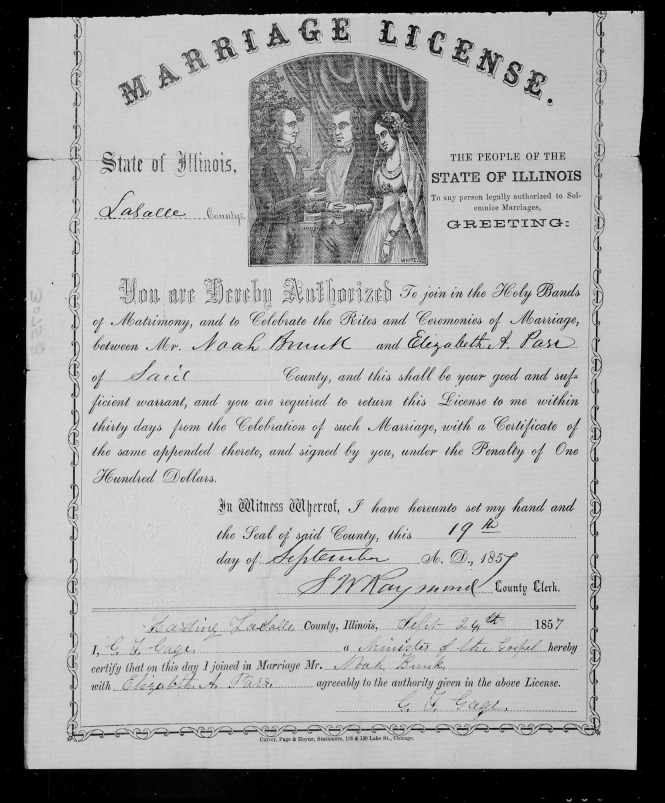 MARRIAGE LICENSE.
State of Illinois,
LaSalle County.
THE PEOPLE OF THE
STATE OF ILLINOIS
To any person legally authorized to Sol-
emnize Marriages,
GREETING:
You are Hereby Authorized To join in the Holy Bands
of Matrimony, and to Celebrate the Rites and Ceremonies of Marriage,
between Mr. Noah Brunk and Elizabeth A. Parr
of Said County, and this shall be your good and suf-
ficient warrant, and you are required to return this License to me within
thirty days from the Celebration of such Marriage, with a Certificate of
the same appended thereto, and signed by you, under the Penalty of One
Hundred Dollars.
In Witness Whereof, I have hereunto set my hand and
the Seal of said County, this 19th
day of September A. D., 1857
J W Raymond County Clerk.
Harding LaSalle County, Illinois, Sept 24th 1857
I, G. F. Gage. a Minister of the Gospel hereby
certify that on this day I joined in Marriage Mr. Noah Brunk
with Elizabeth A. Parr. agreeably to the authority given in the above License.
G. F. Gage.
Culver, Page & Hoyne, Stationers, 128 & 130 Lake St., Chicago.